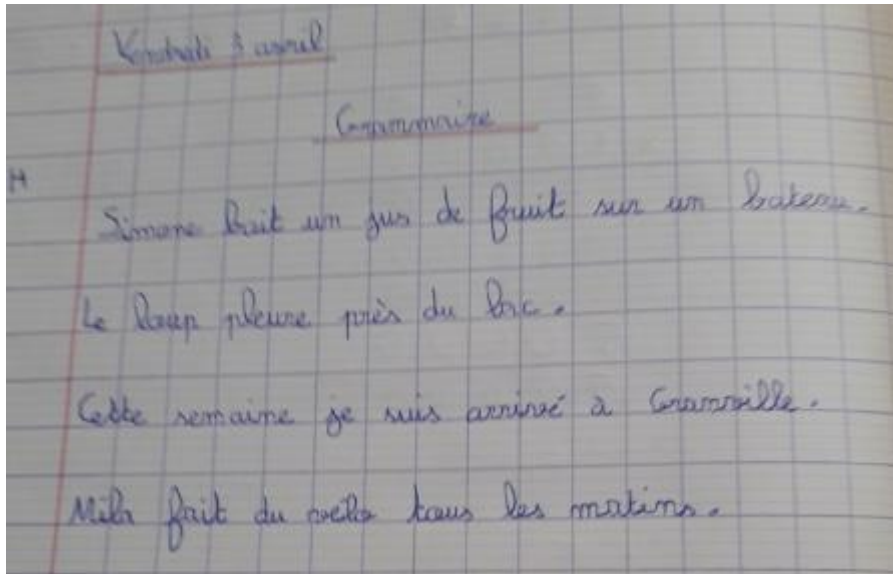 Vendredi 3 avril
Grammaire
Simone boit un jus de fruit sur un bateau.
Le loup pleure près du lac.
Cette semaine je suis arrivé à Granville.
Mila fait du vélo tous les matins.